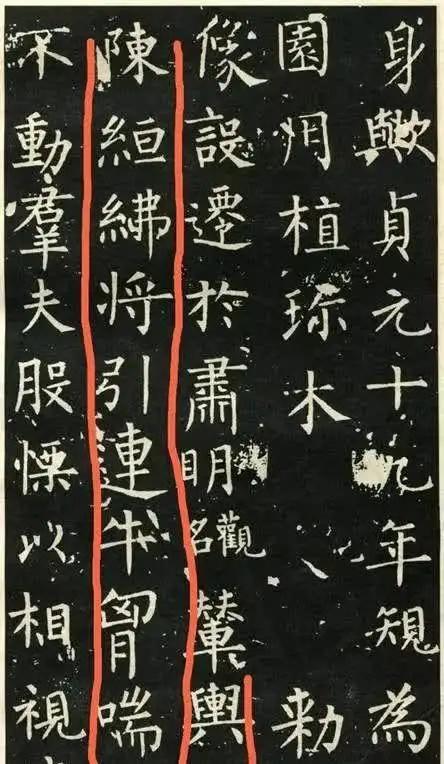 身歟貞元十九年規為
園用植珎木勑
像設遷於肅明觀名輦輿
陳絙紼将引連牛胷喘
不動羣夫股慄以相視